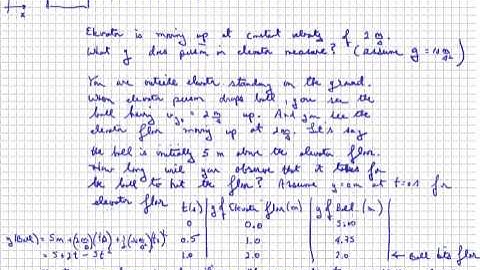 x
Elevator is moving up at constant velocity of 2 m/s.
What g does person in elevator measure? (assume g = 10 m/s²)
You are outside elevator standing on the ground.
When elevator person drops ball, you see the
ball having vy₀ = 2 m/s up. And you see the
elevator floor moving up at 2 m/s. Let's say
the ball is initially 5 m above the elevator floor.
How long will you observe that it takes for
the ball to hit the floor? Assume y = 0 m at t = 0 s for
elevator floor
t(s) | y of Elevator floor (m) | y of Ball (m)
0 | 0.0 | 5.00
y(Ball) = 5m + (2 m/s)(t) + ½(-10 m/s²)t² 0.5 | 1.0 | 4.75
= 5 + 2t - 5t² 1.0 | 2.0 | 2.0 ← Ball hits floor